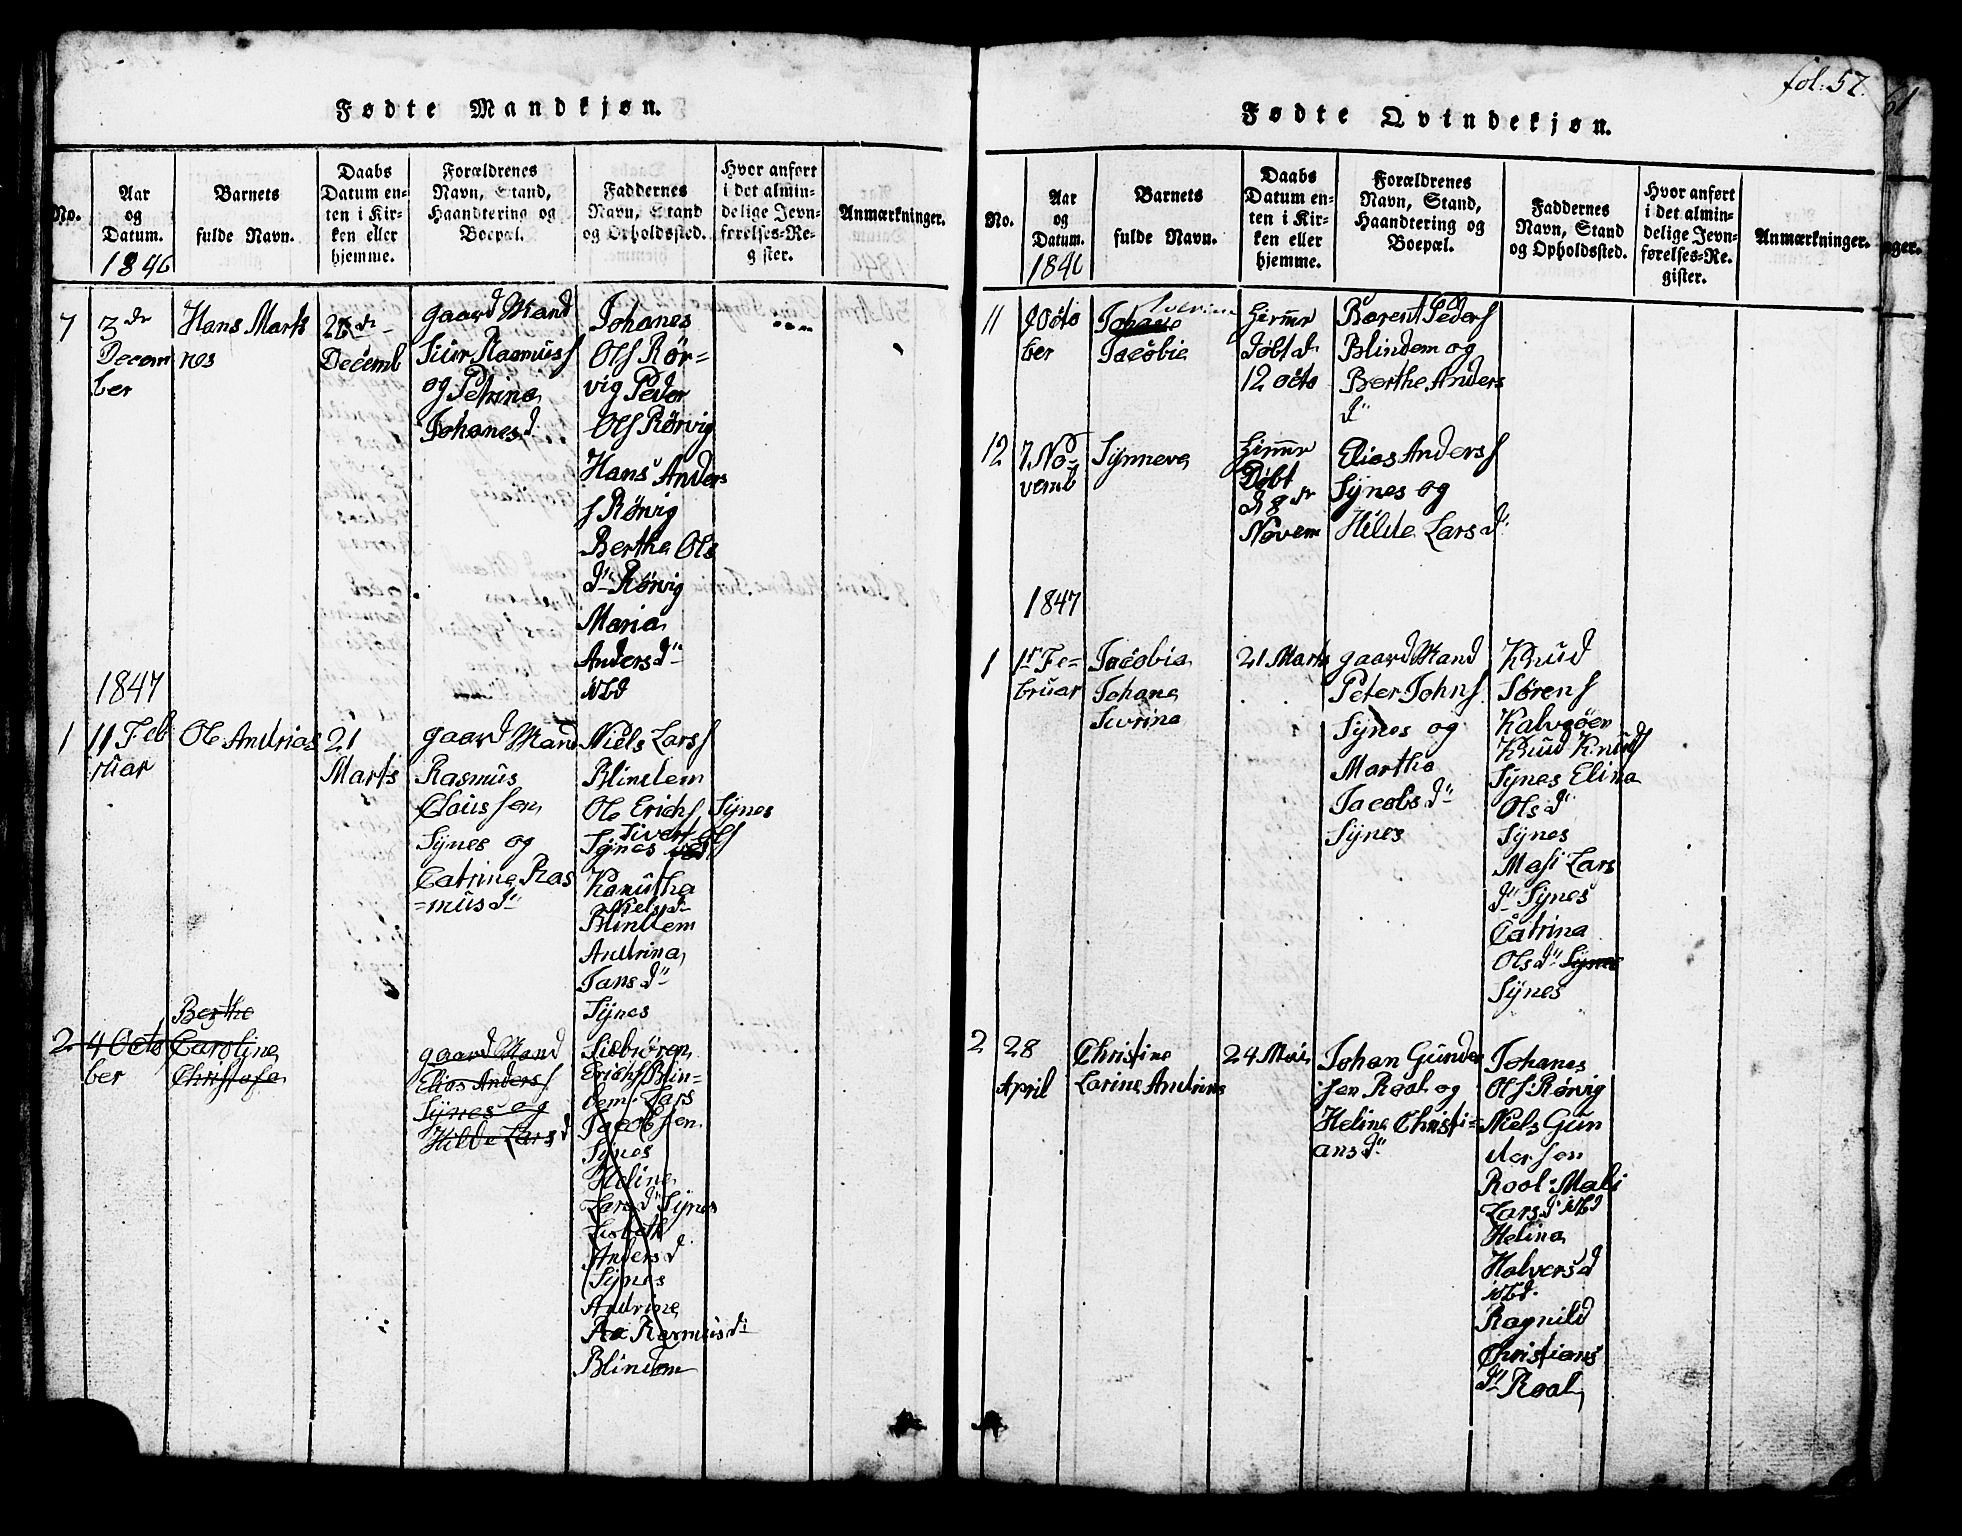 fol: 57.
Fødte Mandkjøn.
No.
Aar
og
Datum.
1846
Barnets
fulde Navn.
Daabs
Datum en-
ten i Kir-
ken eller
hjemme.
Forældrenes
Navn, Stand,
Haandtering og
Boepæl.
Faddernes
Navn, Stand
og Opholdssted.
Hvor anført
i det almin-
delige Jevn-
førelses-Re-
gister.
Anmærkninger.
7
3 dr
Decem
ber
Hans Mark
nes
Decemb
gaard Mand
Siur Rasmuss
og Petrina
Johanesd.
Johanes
Ols Rør=
vig Peder
Ols Rørvig
Hans Anders
s Rørvig
Berthe Ols
d. Rørvig
Maria
Andersd.
ibd
1847
1
11 Feb
ruar
Ole Andrias
21
Marts
gaard Mand
Rasmus
Claussen
Synes og
Catrina Ras
=musd.
Niels Lars
Blindem
Ole Erichs Synes
Sivert Ols
Synes
Kanutha
Nielsd.
Blindem
Andrina
Jansd.
Synes
2
4 Octo
ber
Berthe
Caroline
Christofa
gaard Mand
Elias Anders
Synes og
Hilde Larsd
Erichs Blin=
dem. Lars
Jacobsen
Synes
Heline
Larsd. Synes
Lisbeth
Andersd
Synes
Andrine
Ra Rasmusd.
Blindem
Fødte Qvindekjøn.
No.
Aar
og
Datum.
1846
Barnets
fulde Navn.
Daabs
Datum en-
ten i Kir-
ken eller
hjemme.
Forældrenes
Navn, Stand,
Haandtering og
Boepæl.
Faddernes
Navn, Stand
og Opholdssted.
Hvor anført
i det almin-
delige Jevn-
førelses-Re-
gister.
Anmærkninger.
11
9 Octo
ber
Johane
Jacobie
Hiemme
Døbt d.
12 octo
Barent Peders
Blindem og
Berthe Anders
d.
12
7. No-
vemb
Synneva
Hiemme
Døbt
d 8 dr
Novem
Elias Anders
Synes og
Hilde Larsd.
1847
1
1 Fe=
bruar
Jacobia
Johana
Sivrina
21 Marts
gaard Mand
Peter Johns
Synes og
Martha
Jacobsd.
Synes
Knud
Sørens
Kalvøen
Knud Knuds
Synes Elina
Olsd.
Synes
Masi Lars
d. Synes
Catrina
Olsd. Synes
Synes
2
28
April
Christine
Larine Andrine
24 Mai
Johan Gunder
sen Roal og
Heline Christi=
ansd.
Johanes
Ols Rørvig
Niels Gun
dersen
Roal: Mali
Larsd. ibd
Helina
Halversd
ibd.
Ragnild
Christians
d. Roal